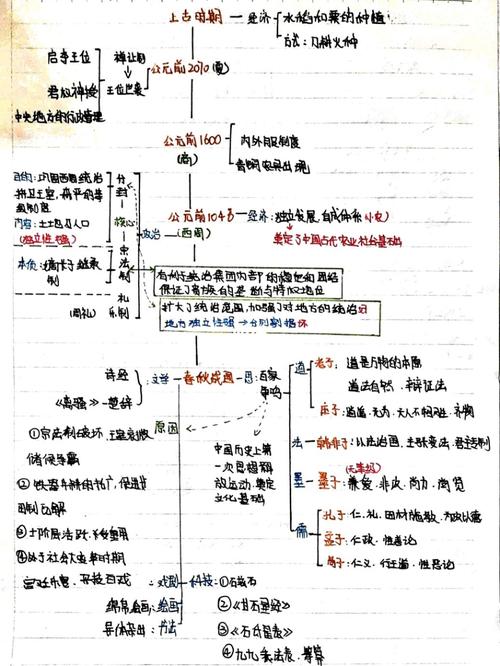 上古时期 — 经济
水稻和粟的种植
方式：刀耕火种
启夺王位
禅让制
王位世袭
君权神授
公元前2070(夏)
中央地方行政管理
公元前1600
(商)
内外服制度
青铜农具出现
目的：巩固西周统治
分封
内容：土地及人口
(独立性强)
核心
宗法制
本质：嫡长子继承制
(周礼)
礼乐制
政治
公元前1046
(西周)
经济：独立发展，自成体系
奠定了中国古代农业社会基础
有利于统治集团内部的稳定和团结
保证了贵族的垄断与特权地位
扩大了统治范围，加强了对地方的统治
地方独立性强→
诗经
《离骚》—楚辞
文学 — 春秋战国 — 思
百家争鸣
原因
①宗法制破坏，王室衰微
诸侯争霸
②铁犁牛耕的推广，促进井
田制瓦解
③士阶层活跃，受重用
④处于社会大变革时期
中国历史上第
一次思想解
放运动，奠定
文化基础
道
老子：道是万物的本原
道法自然，辩证法
庄子：逍遥，无为，天人不相胜，齐物
法 — 韩非子：以法治国，主张变法，君主专制
(无等级)
墨 — 墨子：兼爱，非攻，尚力，尚贤
儒
孔子：仁，礼，因材施教，为政以德
孟子：仁政，性善论
荀子：仁义，行王道，性恶论
戏剧
科技：①石磁石
帛画：绘画
②《甘石星经》
书法
③《石氏星表》
④九九乘法表，筹算